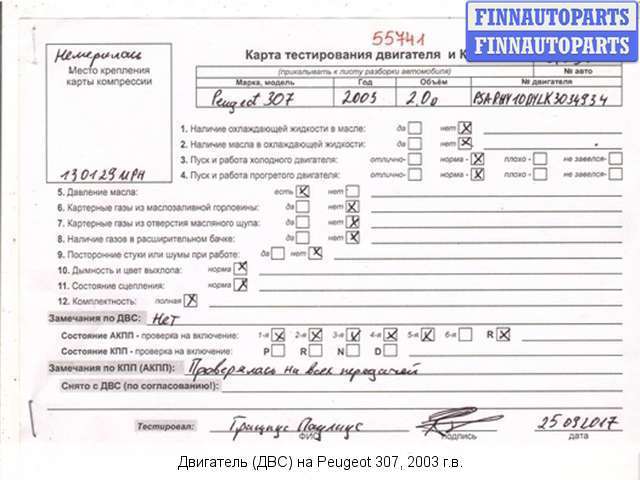 FINNAUTOPARTS
FINNAUTOPARTS
55741
Немерилась
Место крепления
карты компрессии
130129 МРН
Карта тестирования двигателя и К
(прикалывать к листу разборки автомобиля) № авто
Марка, модель Год Объём № двигателя
Peugeot 307 2003 2,0д PSARHY10DYLK3034934
1. Наличие охлаждающей жидкости в масле: да нет X
2. Наличие масла в охлаждающей жидкости: да нет X
3. Пуск и работа холодного двигателя: отлично- норма - X плохо - не завелся-
4. Пуск и работа прогретого двигателя: отлично- норма - X плохо - не завелся-
5. Давление масла: есть X нет
6. Картерные газы из маслозаливной горловины: да нет X
7. Картерные газы из отверстия масляного щупа: да нет X
8. Наличие газов в расширительном бачке: да нет X
9. Посторонние стуки или шумы при работе: да нет X
10. Дымность и цвет выхлопа: норма X
11. Состояние сцепления: норма X
12. Комплектность: полная X
Замечания по ДВС: Нет
Состояние АКПП - проверка на включение: 1-я X 2-я X 3-я X 4-я X 5-я X 6-я R X
Состояние КПП - проверка на включение: P R N D
Замечания по КПП (АКПП): Проверялась на всех передачей
Снято с ДВС (по согласованию!):
Тестировал: Грицпус Паулиус 25 09 2017
ФИО подпись дата
Двигатель (ДВС) на Peugeot 307, 2003 г.в.